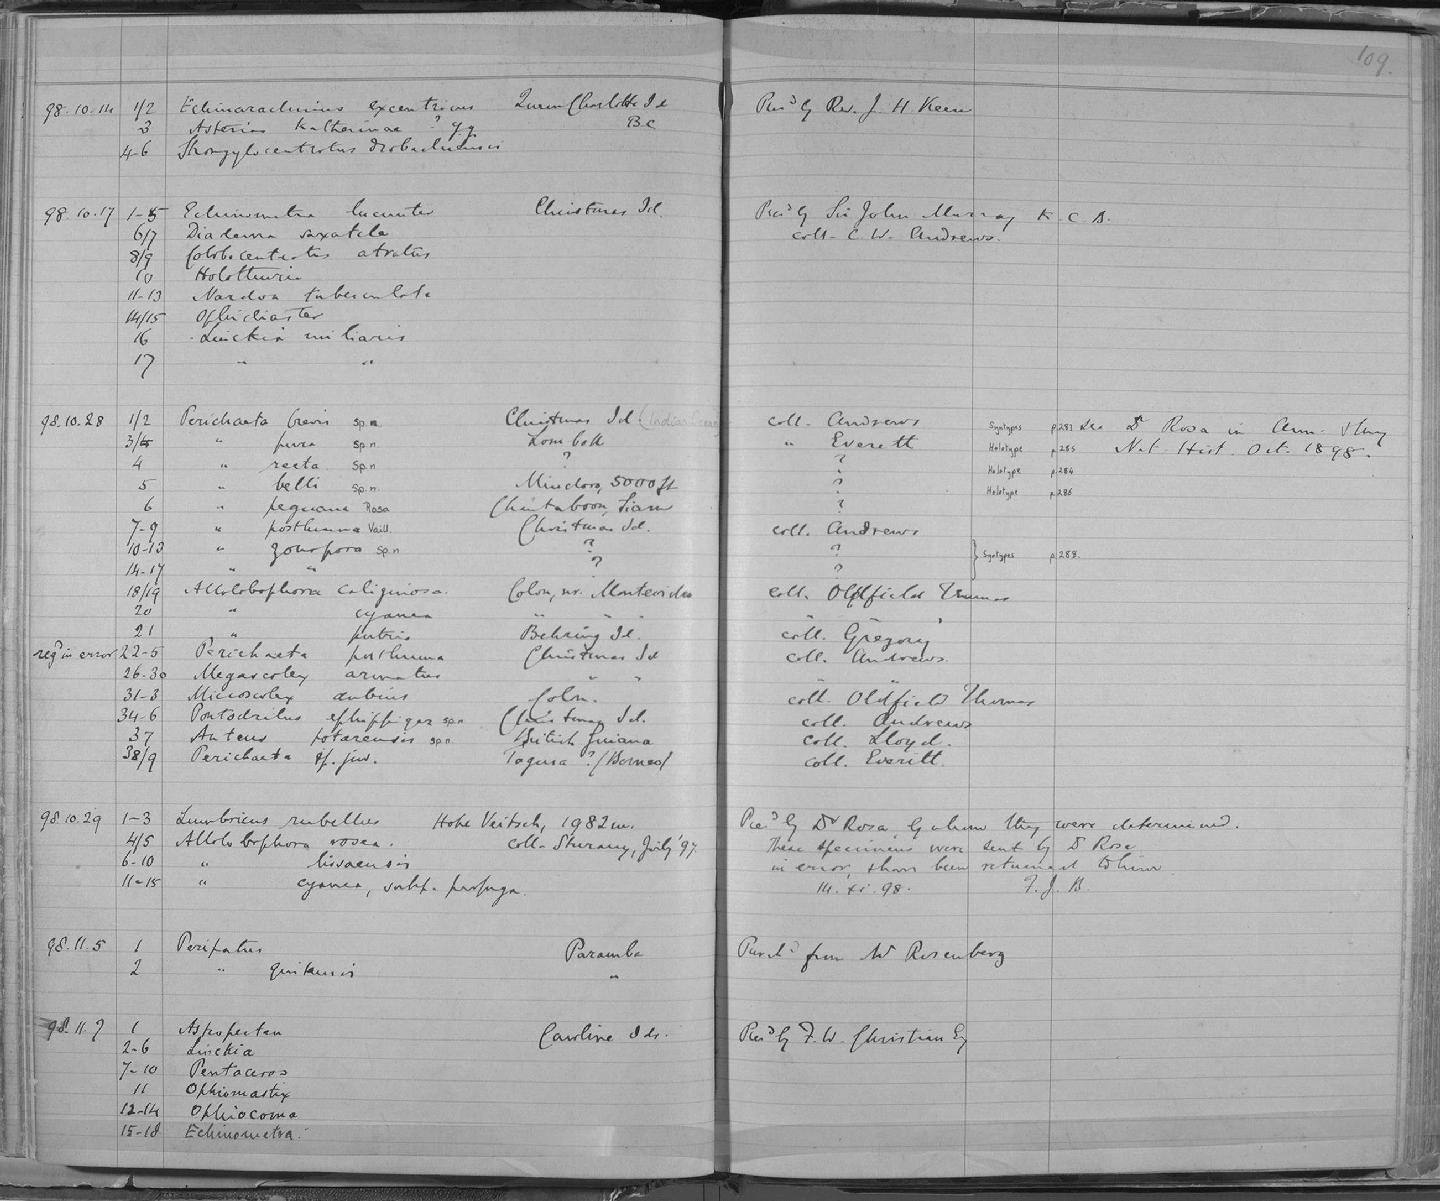 109.
98.10.14 1/2 Echinarachnius excentricus Queen Charlotte Id Pres'd by Rev. J. H. Keen
3 Asterias katherinae ? yg B.C
4-6 Strongylocentrotus drobachiensis
98.10.17 1-5 Echinometra lucunter Christmas Id. Pres'd by Sir John Murray K. C. B.
6/7 Diadema saxatile coll. C. W. Andrews.
8/9 Colobocentrotus atratus
10 Holothuria
11-13 Nardoa tuberculata
14/15 Ophidiaster
16 Linckia miliaris
17 " "
98.10.28 1/2 Perichaeta brevis sp.n. Christmas Id (Indian Ocean) coll. Andrews Syntypes p.283 see Dr Rosa in Ann. & Mag
3/4 " pura sp.n. Lombok " Everett Holotype p.285 Nat. Hist. Oct. 1898.
4 " recta sp.n ? ? Holotype p.284
5 " belli sp.n. Mindoro, 5000 ft ? Holotype p.286
6 " peguana Rosa Chantaboon, Siam ?
7-9 " posthuma Vaill. Christmas Id. coll. Andrews
10-13 " gonopora sp.n ? ? } Syntypes p.288.
14-17 " " ? ?
18/19 Allolobophora caliginosa. Colon, nr. Montevideo coll. Oldfield Thomas
20 " cyanea " " " " "
21 " putris Behring Id. coll. Gregory
reg'd in error 22-5 Perichaeta posthuma Christmas Id coll. Andrews.
26-30 Megascolex armatus " " " "
31-3 Microscolex dubius Colon. coll. Oldfield Thomas
34-6 Pontodrilus ephippiger sp.n Christmas Id. coll. Andrews
37 Anteus potarensis sp.n. British Guiana coll. Lloyd.
38/9 Perichaeta sp. juv. Tagusa ? (Borneo) coll. Everitt.
98.10.29 1-3 Lumbricus rubellus Hohe Veitsch, 1982 m. Pres'd by Dr Rosa, by whom they were determined.
4/5 Allolobophora rosea. coll. Sturany, July '97. These specimens were sent by Dr Rosa
6-10 " lissaensis in error, & have been returned to him
11-15 " cyanea, subsp. profuga. 14. xi. 98. F. J. B.
98.11.5 1 Peripatus Paramba Purch'd from Mr Rosenberg
2 " quitensis "
98.11.7 1 Astropecten Caroline Ids. Pres'd by F. W. Christian Esq
2-6 Linckia
7-10 Pentaceros
11 Ophiomastix
12-14 Ophiocoma
15-18 Echinometra.